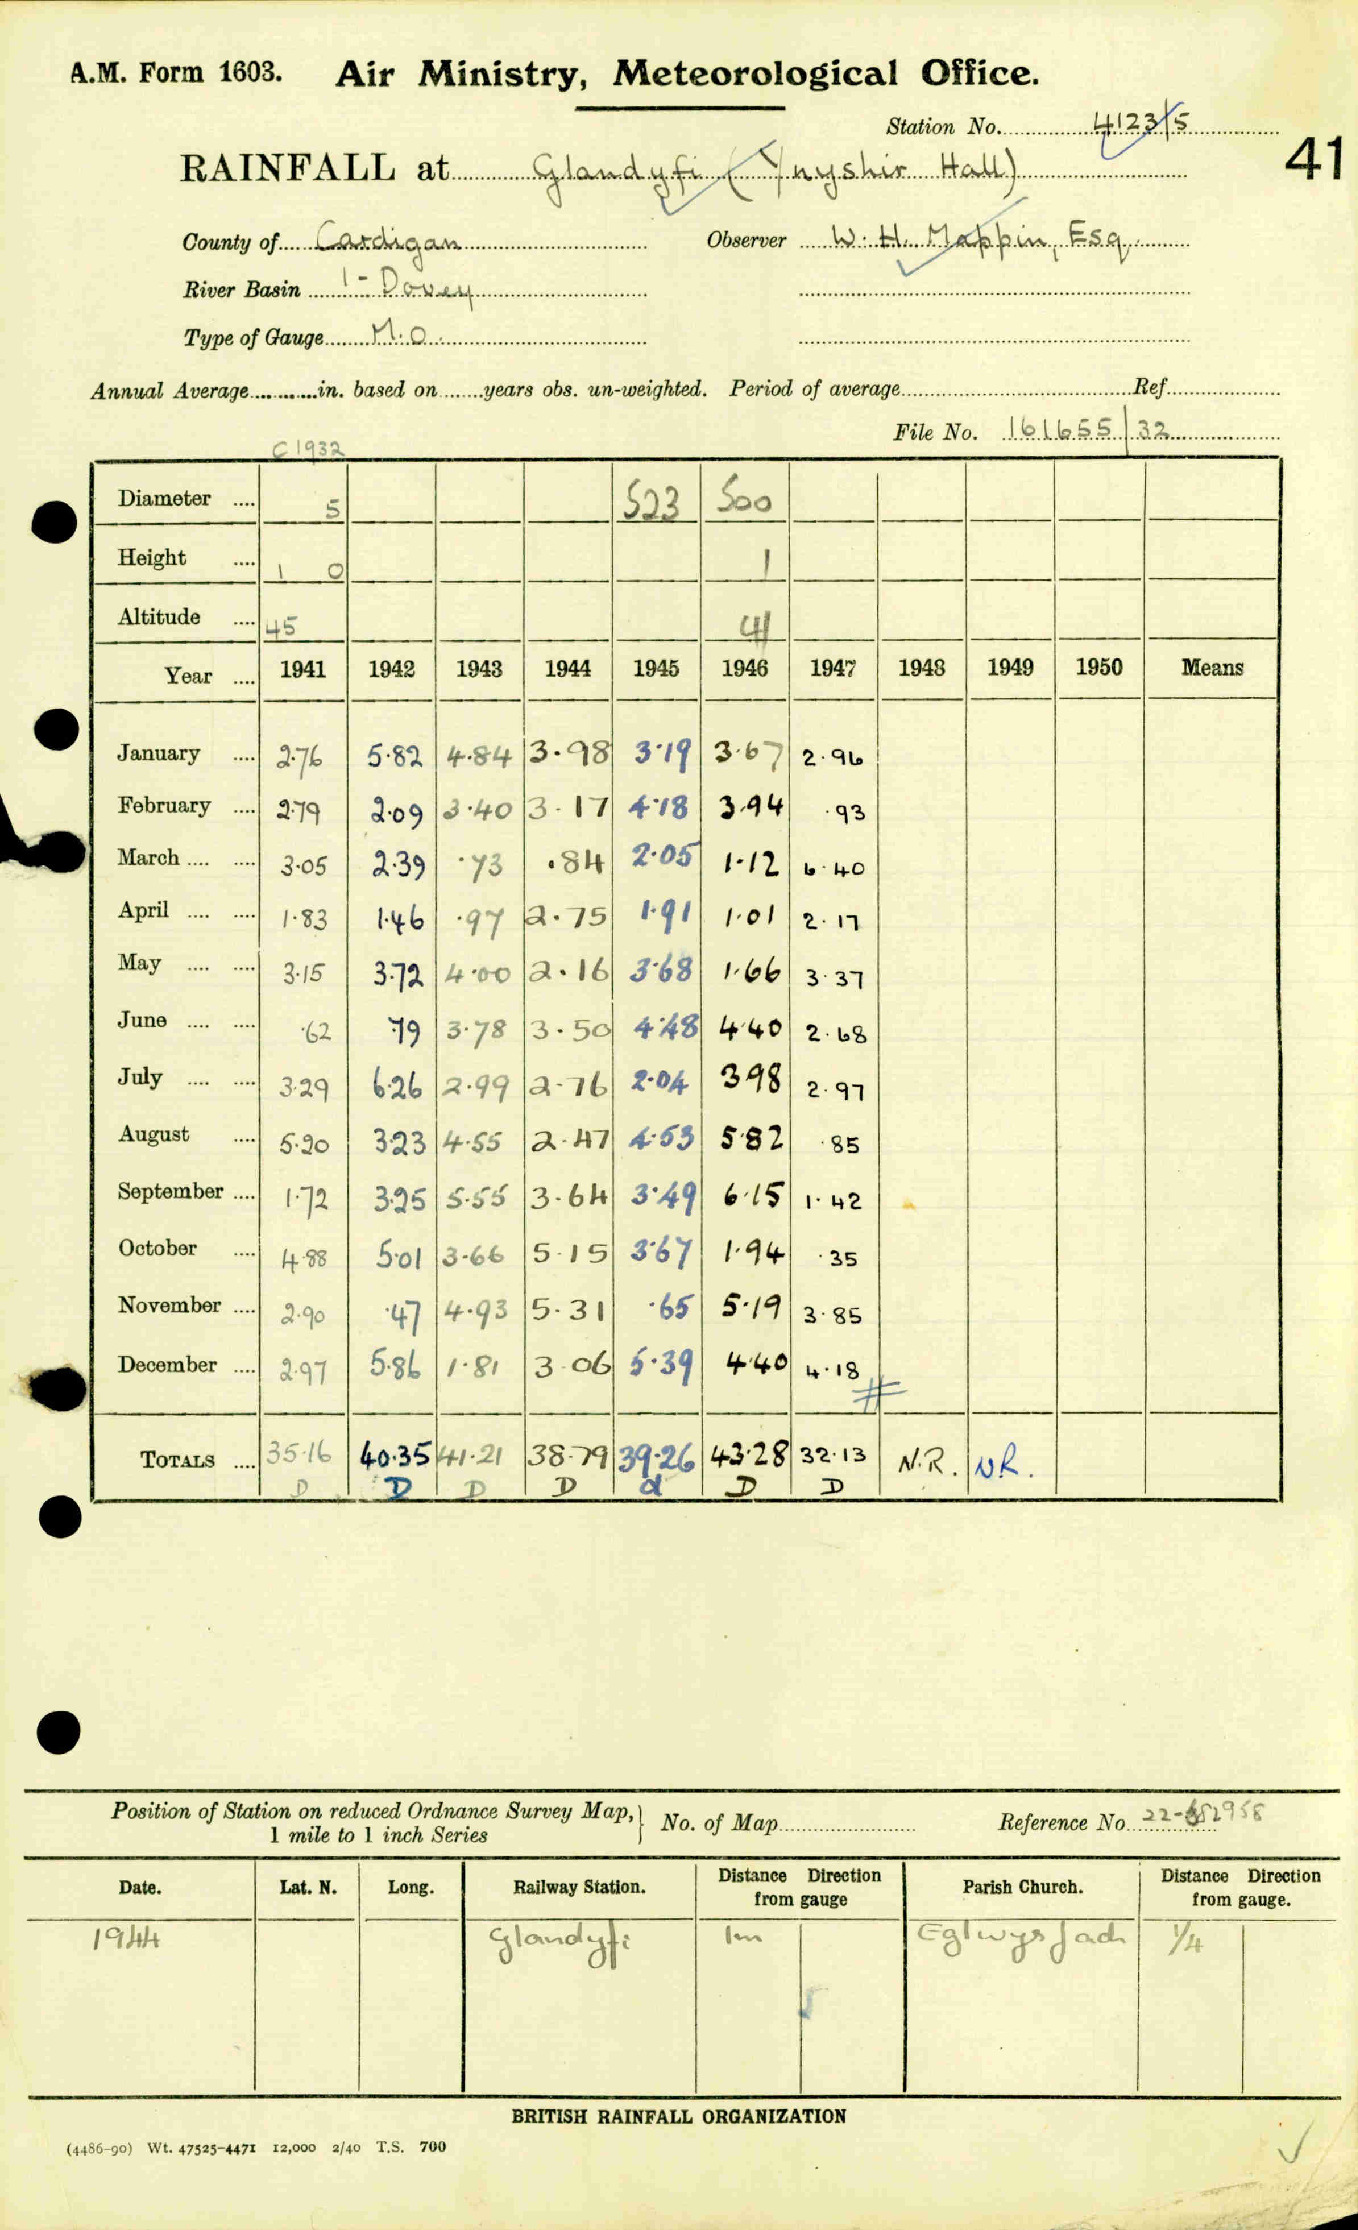 A.M. Form 1603. Air Ministry, Meteorological Office.
Station No. 4123/5
41
RAINFALL at Glandyfi (Ynyshir Hall)
County of Cardigan Observer W. H. Mappin, Esq.
River Basin 1 - Dovey
Type of Gauge M.O.
Annual Average in. based on years obs. un-weighted. Period of average Ref.
File No. 161655/32
C 1932
Diameter 5 523 500
Height 1 0 1
Altitude 45 41
Year 1941 1942 1943 1944 1945 1946 1947 1948 1949 1950 Means
January 2.76 5.82 4.84 3.98 3.19 3.67 2.96
February 2.79 2.09 3.40 3.17 4.18 3.94 .93
March 3.05 2.39 .73 .84 2.05 1.12 6.40
April 1.83 1.46 .97 2.75 1.91 1.01 2.17
May 3.15 3.72 4.00 2.16 3.68 1.66 3.37
June .62 .79 3.78 3.50 4.48 4.40 2.68
July 3.29 6.26 2.99 2.76 2.04 3.98 2.97
August 5.20 3.23 4.55 2.47 4.53 5.82 .85
September 1.72 3.25 5.55 3.64 3.49 6.15 1.42
October 4.88 5.01 3.66 5.15 3.67 1.94 .35
November 2.90 .47 4.93 5.31 .65 5.19 3.85
December 2.97 5.86 1.81 3.06 5.39 4.40 4.18
#
TOTALS 35.16 40.35 41.21 38.79 39.26 43.28 32.13 N.R. N.R.
D D D D d D D
Position of Station on reduced Ordnance Survey Map, 1 mile to 1 inch Series } No. of Map Reference No.
Date. Lat. N. Long. Railway Station. Distance Direction from gauge Parish Church. Distance Direction from gauge.
1944 Glandyfi 1m Eglwysfach 1/4
BRITISH RAINFALL ORGANIZATION
(4486-90) Wt. 47525-4471 12,000 2/40 T.S. 700